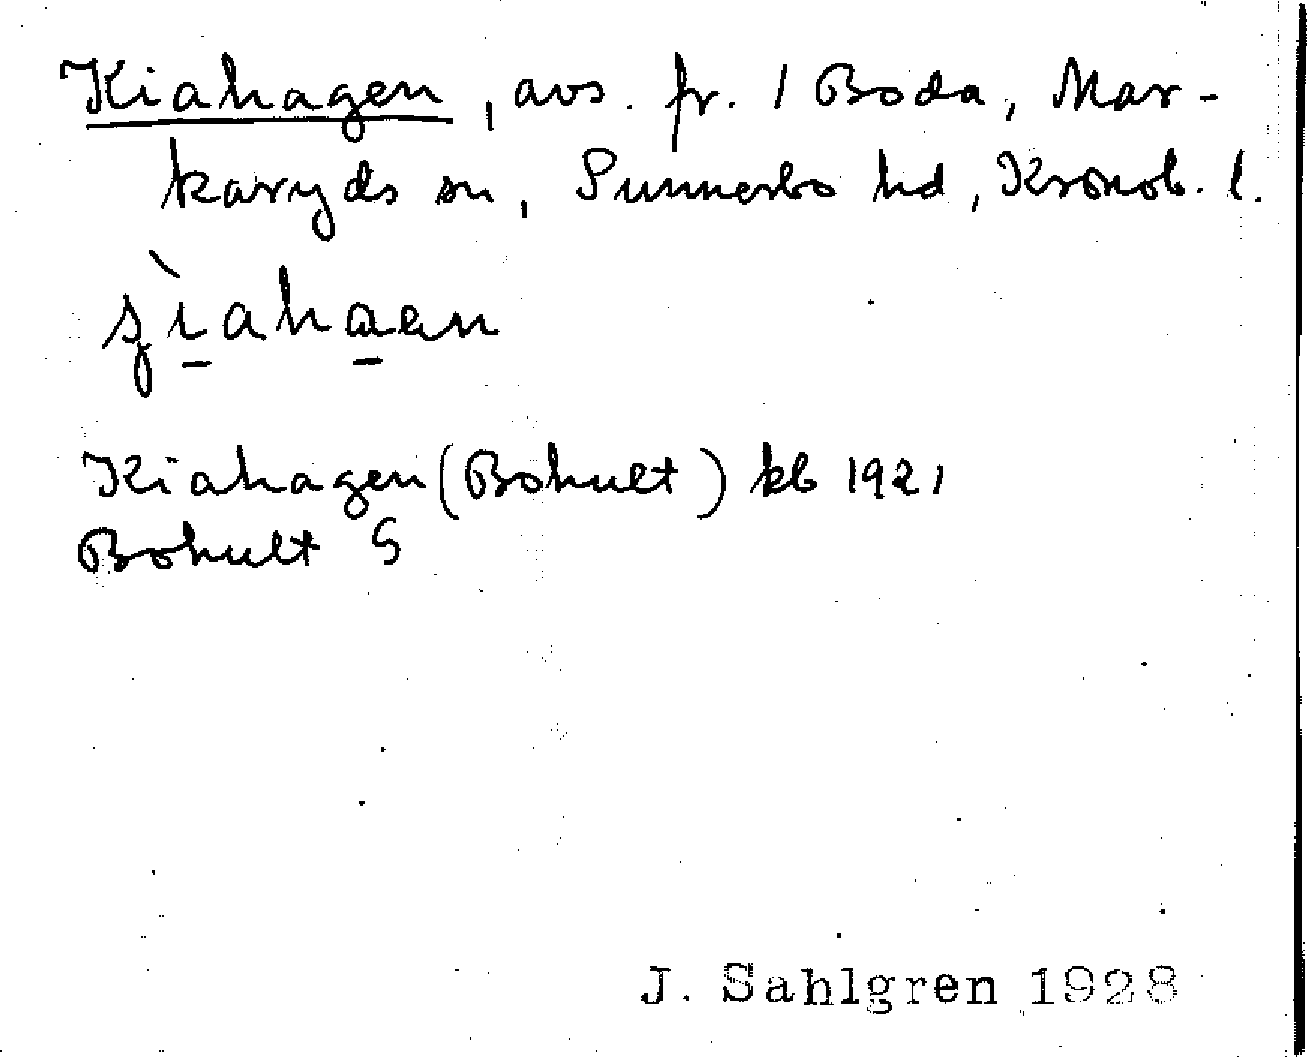 Kiahagen, avs. fr. 1 Boda, Mar-
karyds sn, Sunnerbo hd, Kronob. l.
Kiahagen (Bohult) kb 1921
Bohult S
J. Sahlgren 1928